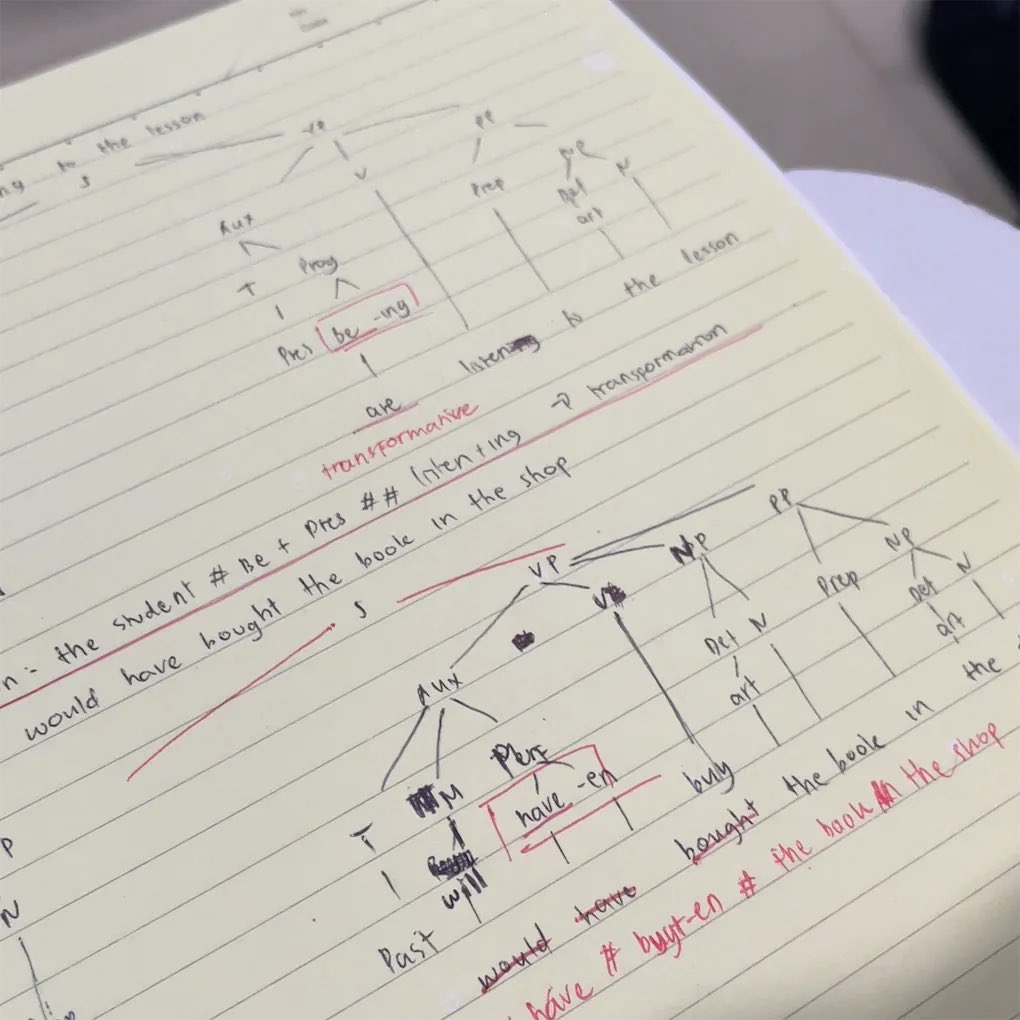 ng to the lesson
S VP PP
V Prep NP
Det N
art
Aux
T Prog
Pres be -ing
are listening to the lesson
transformative
n: the student # Be + Pres ## listen+ing → transformation
would have bought the book in the shop
S VP NP PP
V Prep NP
Det N
art
Det N
art
Aux
T M Perf
have -en
Past will buy
would have bought the book in the
have # buy+-en # the book in the shop
P
N